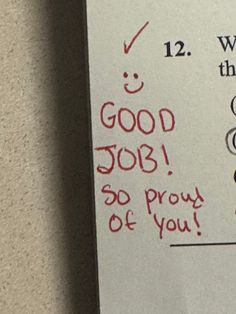 12. W
th
GOOD
JOB!
so proud
of you!